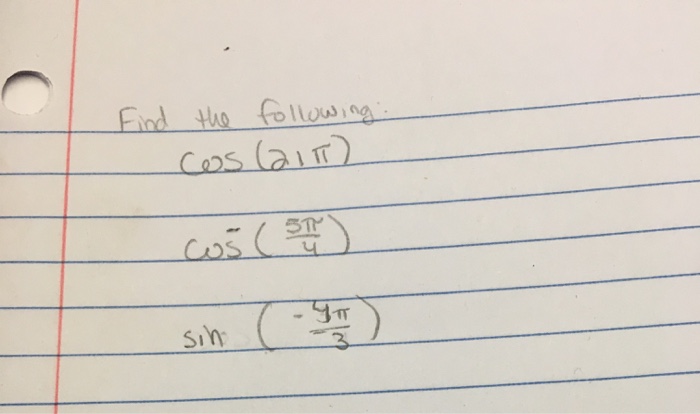 Find the following:
cos (21π)
cos (5π/4)
sin (-4π/3)